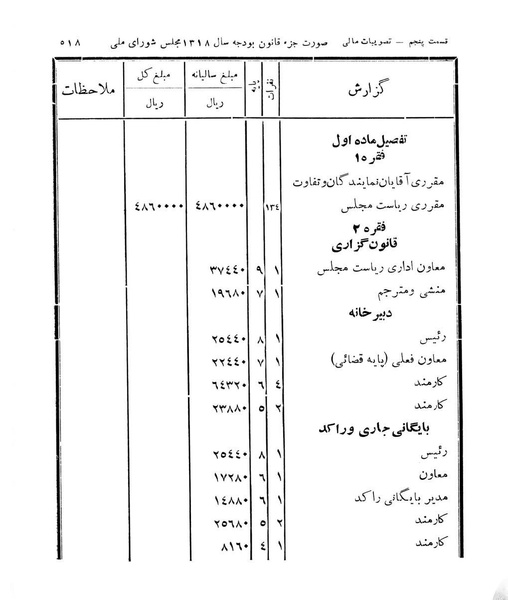 قسمت پنجم — تصویبات مالی صورت جزء قانون بودجه سال ۱۳۱۸ مجلس شورای ملی ۵۱۸
گزارش نفرات پایه مبلغ سالیانه ریال مبلغ کل ریال ملاحظات
تفصیل ماده اول
فقره ۱
مقرری آقایان نمایندگان و تفاوت
مقرری ریاست مجلس ۱۳٤ ٤٨٦۰۰۰۰ ٤٨٦۰۰۰۰
فقره ۲
قانون گزاری
معاون اداری ریاست مجلس ۱ ۹ ۳۷٤٤۰
منشی و مترجم ۱ ۷ ۱۹٦۸۰
دبیر خانه
رئیس ۱ ۸ ۲۵٤٤۰
معاون فعلی (پایه قضائی) ۱ ۷ ۲۲٤٤۰
کارمند ٤ ٦ ٦٤۳۲۰
کارمند ۲ ۵ ۲۳۸۸۰
بایگانی جاری و راکد
رئیس ۱ ۸ ۲۵٤٤۰
معاون ۱ ٦ ۱۷۲۸۰
مدیر بایگانی راکد ۱ ٦ ۱٤۸۸۰
کارمند ۲ ۵ ۲۵٦۸۰
کارمند ۱ ٤ ۸۱٦۰